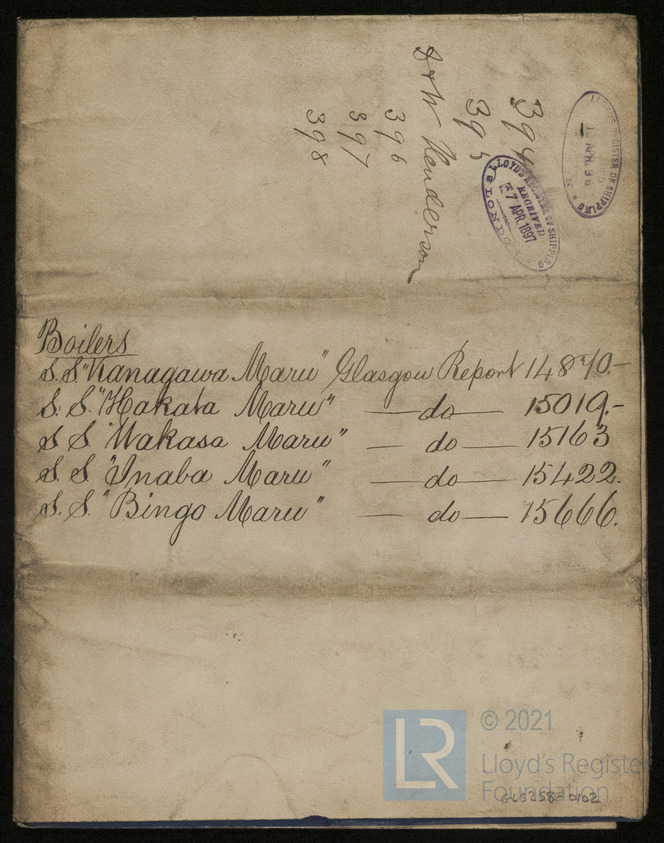 394
395
D & W Henderson
396
397
398
LLOYD'S REGISTER OF SHIPPING
RECEIVED
7 APR 1897
LONDON
LLOYD'S REGISTER OF SHIPPING
APR. 96
Boilers
S.S "Kanagawa Maru" Glasgow Report 14870.-
S.S. "Hakata Maru" — do — 15019.-
S S "Wakasa Maru" — do — 15163
S. S. "Inaba Maru" — do — 15422.
S. S. "Bingo Maru" — do — 15666.
LR
© 2021
Lloyd's Register
Foundation
GLS258-0102